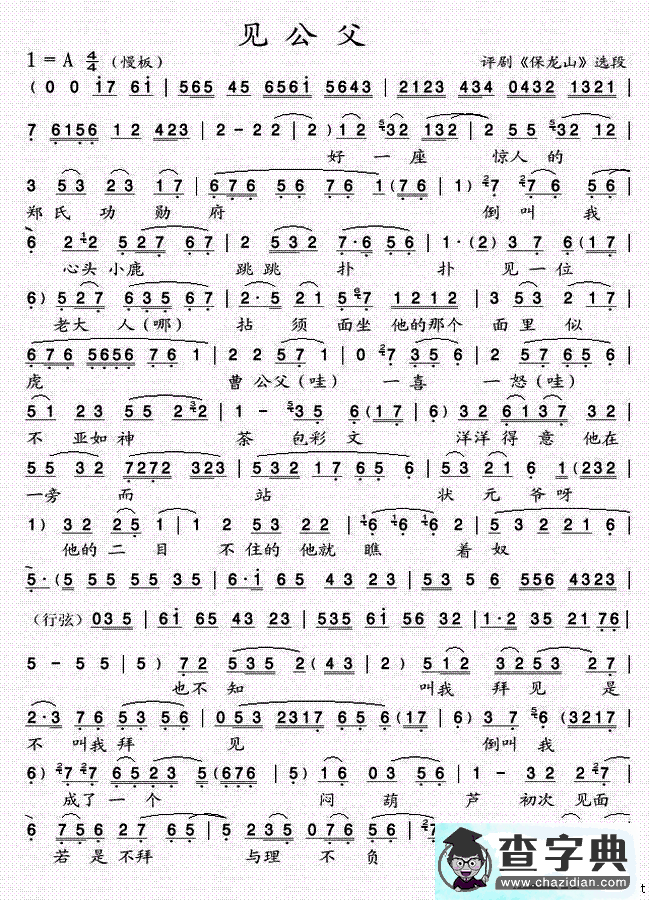 见公父
1=A 4/4 (慢板) 评剧《保龙山》选段
(0 0 i7 6i | 565 45 656i 5643 | 2123 434 0432 1321 |
7 6156 12 423 | 2-22 | 2)12 32 132 | 2 55 32 12 |
好一座 惊人的
3 53 23 17 | 676 56 76 1(76 | 1) 7 76 56 |
郑氏功勋府 倒叫我
6 2 2 527 67 | 2 532 7·6 56 | 1·(2) 37 6(17 |
心头小鹿 跳跳扑 扑见一位
6) 527 635 67 | 2·5 21 57 1212 | 353 2 17 |
老大人(哪) 拈须面坐他的那个 面里似
676 5656 76 1 | 2 2 57 1 | 0 7 356 | 2 57 656 |
虎 曹公父(哇) 一喜 一怒(哇)
51 23 55 2 | 1 - 35 6(17 | 6) 32 6137 32 |
不亚如神 荼包彩文 洋洋得意他在
55 32 7272 323 | 532 17 65 6 | 53 21 6 1(232 |
一旁而 站 状元爷呀
1) 32 25 1 | 1 2 53 22 | 6 6 6 2 | 5 3532 21 6 |
他的二目 不住的他就瞧 着奴
5·(5 55 55 35 | 6·i 65 43 23 | 53 56 556 4323 |
(行弦) 035 | 6i 65 43 23 | 535 6i 56 32 | 1·2 35 21 76 |
5 - 55 | 5) 72 535 2(43 | 2) 512 3253 27 |
也不知 叫我 拜见 是
2·3 76 53 56 | 053 2317 656(17 | 6) 37 6(3217 |
不叫我拜 见 倒叫我
6) 7 7 6523 5(676 | 5) 16 03 56
成了一个 闷葫芦初次见面
6 756 27 65 | 5 235 076 56
若是不拜 与理不负
查字典
www.chazidian.com
t